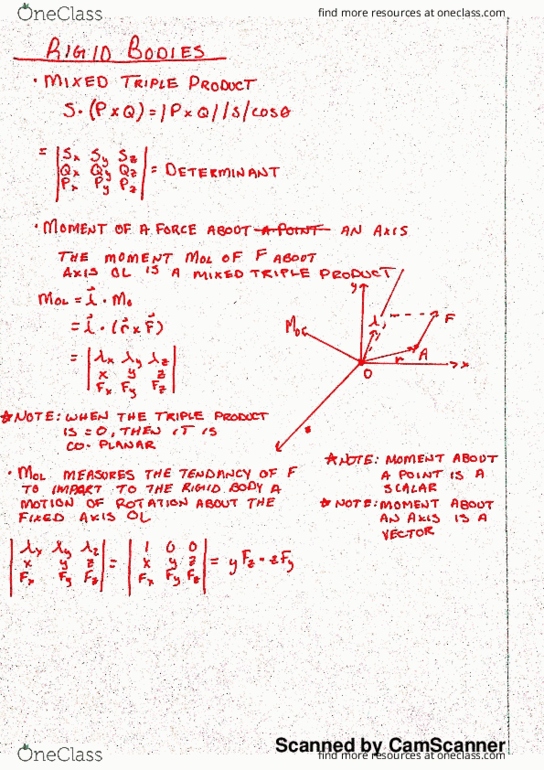 OneClass
find more resources at oneclass.com
RIGID BODIES
• MIXED TRIPLE PRODUCT
S • (P x Q) = |P x Q| |S| cosθ
= | Sx Sy Sz |
| Qx Qy Qz | = DETERMINANT
| Px Py Pz |
• MOMENT OF A FORCE ABOUT A POINT AN AXIS
THE MOMENT MOL OF F ABOUT
AXIS OL IS A MIXED TRIPLE PRODUCT
MOL = λ • Mo
= λ • (r x F)
= | λx λy λz |
| x y z |
| Fx Fy Fz |
y
λ
F
A
r
x
O
z
★ NOTE: WHEN THE TRIPLE PRODUCT
IS = 0, THEN IT IS
CO-PLANAR
• MOL MEASURES THE TENDANCY OF F
TO IMPART TO THE RIGID BODY A
MOTION OF ROTATION ABOUT THE
FIXED AXIS OL
★ NOTE: MOMENT ABOUT
A POINT IS A
SCALAR
★ NOTE: MOMENT ABOUT
AN AXIS IS A
VECTOR
| λx λy λz | = | 1 0 0 |
| x y z | | x y z | = yFz - zFy
| Fx Fy Fz | | Fx Fy Fz |
Scanned by CamScanner
OneClass
find more resources at oneclass.com